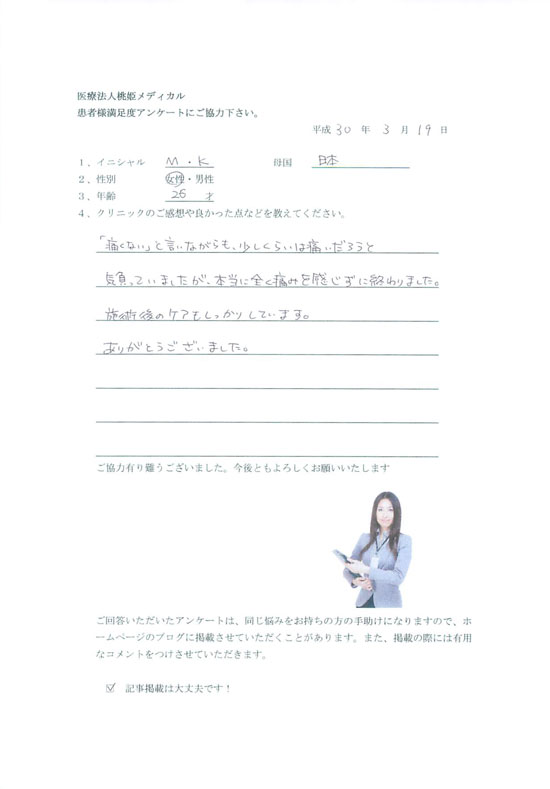 医療法人桃姫メディカル
患者様満足度アンケートにご協力下さい。
平成 30 年 3 月 19 日
1、イニシャル M・K 母国 日本
2、性別 女性・男性
3、年齢 26 才
4、クリニックのご感想や良かった点などを教えてください。
「痛くない」と言いながらも、少しくらいは痛いだろうと
気負っていましたが、本当に全く痛みを感じずに終わりました。
施術後のケアもしっかりしています。
ありがとうございました。
ご協力有り難うございました。今後ともよろしくお願いいたします
ご回答いただいたアンケートは、同じ悩みをお持ちの方の手助けになりますので、ホ
ームページのブログに掲載させていただくことがあります。また、掲載の際には有用
なコメントをつけさせていただきます。
☑ 記事掲載は大丈夫です！